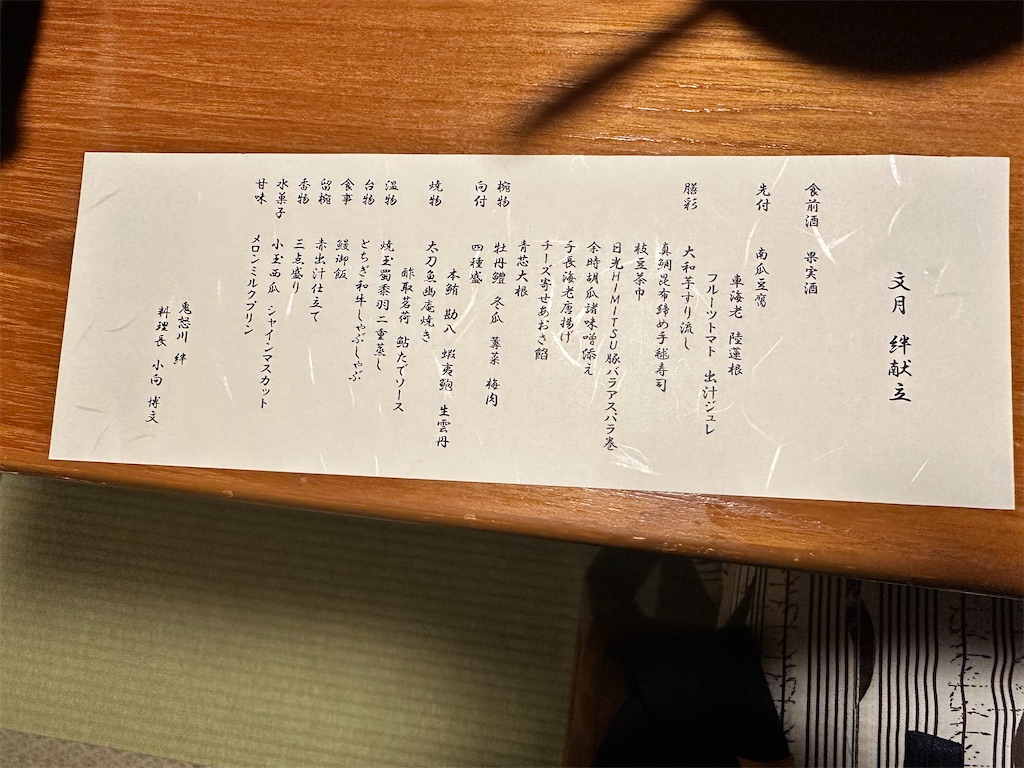 文月 絆献立
食前酒 果実酒
先付 南瓜豆腐
車海老 陸蓮根
フルーツトマト 出汁ジュレ
膳彩 大和芋すり流し
真鯛昆布締め手毬寿司
枝豆茶巾
日光HIMITSU豚バラアスパラ巻
余時胡瓜諸味噌添え
手長海老唐揚げ
チーズ寄せあおさ餡
青芯大根
椀物 牡丹鱧 冬瓜 蓴菜 梅肉
向付 四種盛
本鮪 勘八 蝦夷鮑 生雲丹
焼物 太刀魚幽庵焼き
酢取茗荷 鮎たでソース
温物 焼玉蜀黍羽二重蒸し
台物 とちぎ和牛しゃぶしゃぶ
食事 鰻御飯
留椀 赤出汁仕立て
香物 三点盛り
水菓子 小玉西瓜 シャインマスカット
甘味 メロンミルクプリン
鬼怒川 絆
料理長 小向 博文